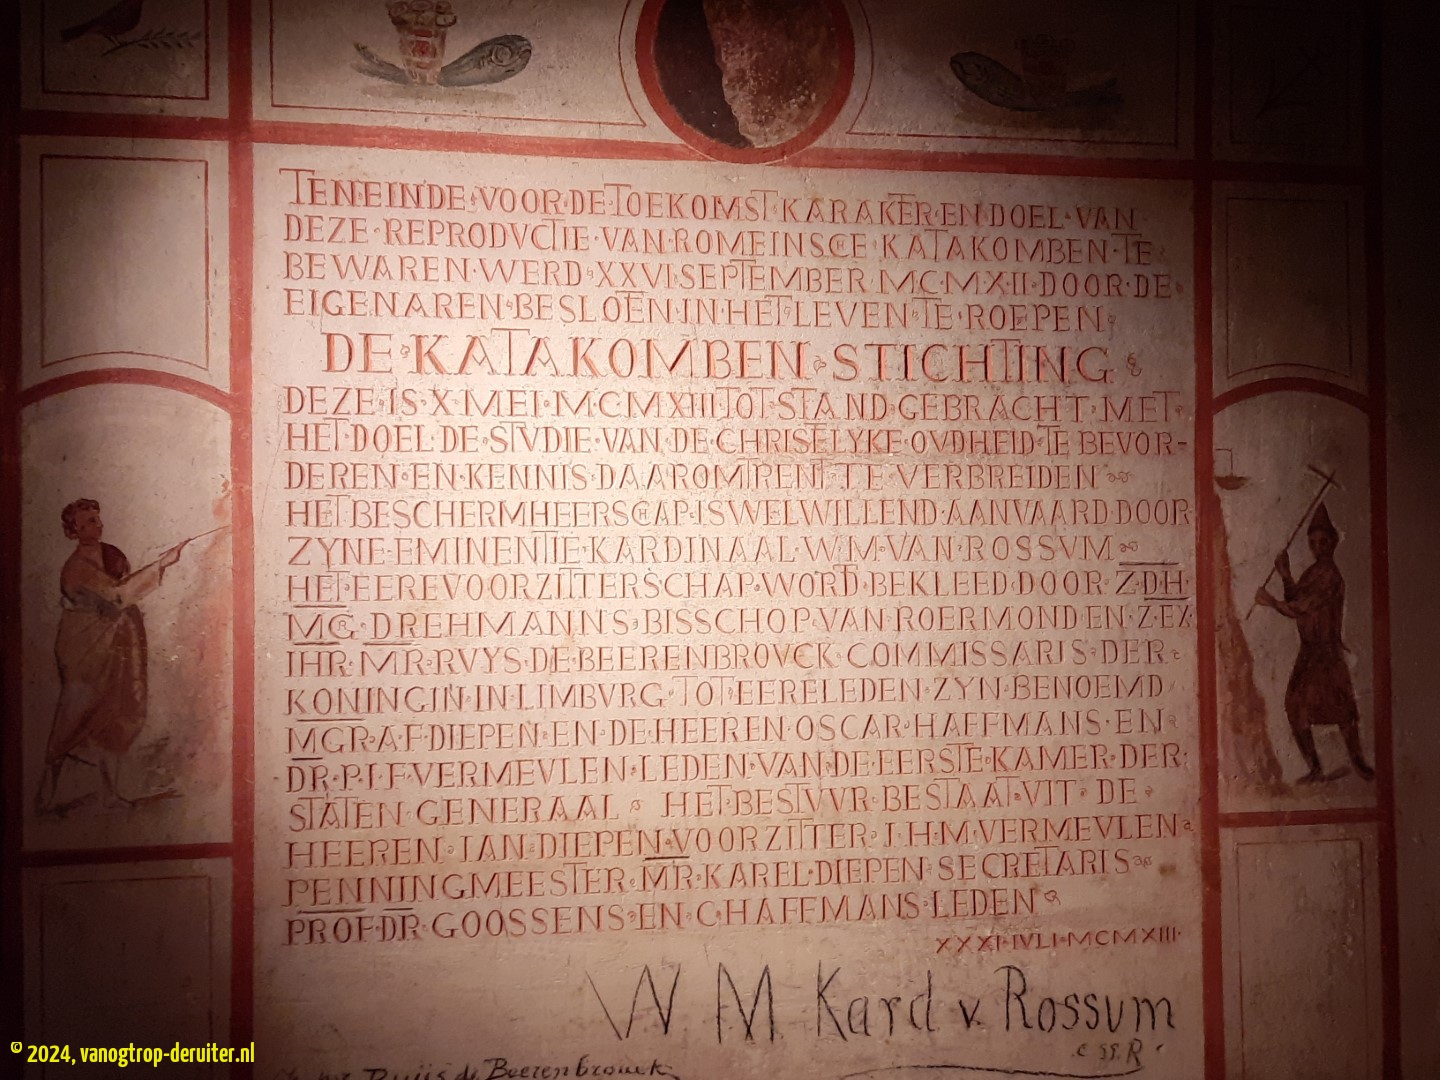 TEN·EINDE·VOOR·DE·TOEKOMST KARAKTER·EN·DOEL·VAN
DEZE·REPRODVCTIE·VAN·ROMEINSCHE·KATAKOMBEN·TE
BEWAREN·WERD·XXVI·SEPTEMBER MCMXII·DOOR·DE
EIGENAREN·BESLOTEN·IN·HET·LEVEN·TE·ROEPEN
DE·KATAKOMBEN·STICHTING
DEZE·IS·X·MEI·MCMXIII TOT·STAND·GEBRACHT·MET
HET·DOEL DE·STVDIE·VAN·DE·CHRISTELYKE·OVDHEID·TE BEVOR-
DEREN·EN·KENNIS·DAAROMTRENT·TE VERBREIDEN
HET·BESCHERMHEERSCHAP·IS WELWILLEND·AANVAARD DOOR
ZYNE·EMINENTIE·KARDINAAL·W·M·VAN·ROSSVM
HET·EEREVOORZITTERSCHAP·WORDT·BEKLEED·DOOR·Z·DH·
MGR·DREHMANNS·BISSCHOP·VAN·ROERMOND EN·Z·EX
IHR·MR·RVYS·DE·BEERENBROVCK·COMMISSARIS·DER
KONINGIN·IN·LIMBVRG·TOT·EERELEDEN·ZYN·BENOEMD
MGR·A·F·DIEPEN·EN·DE·HEEREN·OSCAR·HAFFMANS·EN
DR·P·I·F·VERMEVLEN·LEDEN·VAN·DE·EERSTE·KAMER·DER
STATEN·GENERAAL HET·BESTVVR·BESTAAT·VIT·DE
HEEREN·IAN·DIEPEN·VOORZITTER·J·H·M·VERMEVLEN
PENNINGMEESTER·MR·KAREL·DIEPEN·SECRETARIS
PROF·DR·GOOSSENS·EN·C·HAFFMANS·LEDEN
XXXI·IVLI·MCMXIII·
W M Kard v. Rossum
Ruijs de Beerenbrouck
© 2024, vanogtrop-deruiter.nl